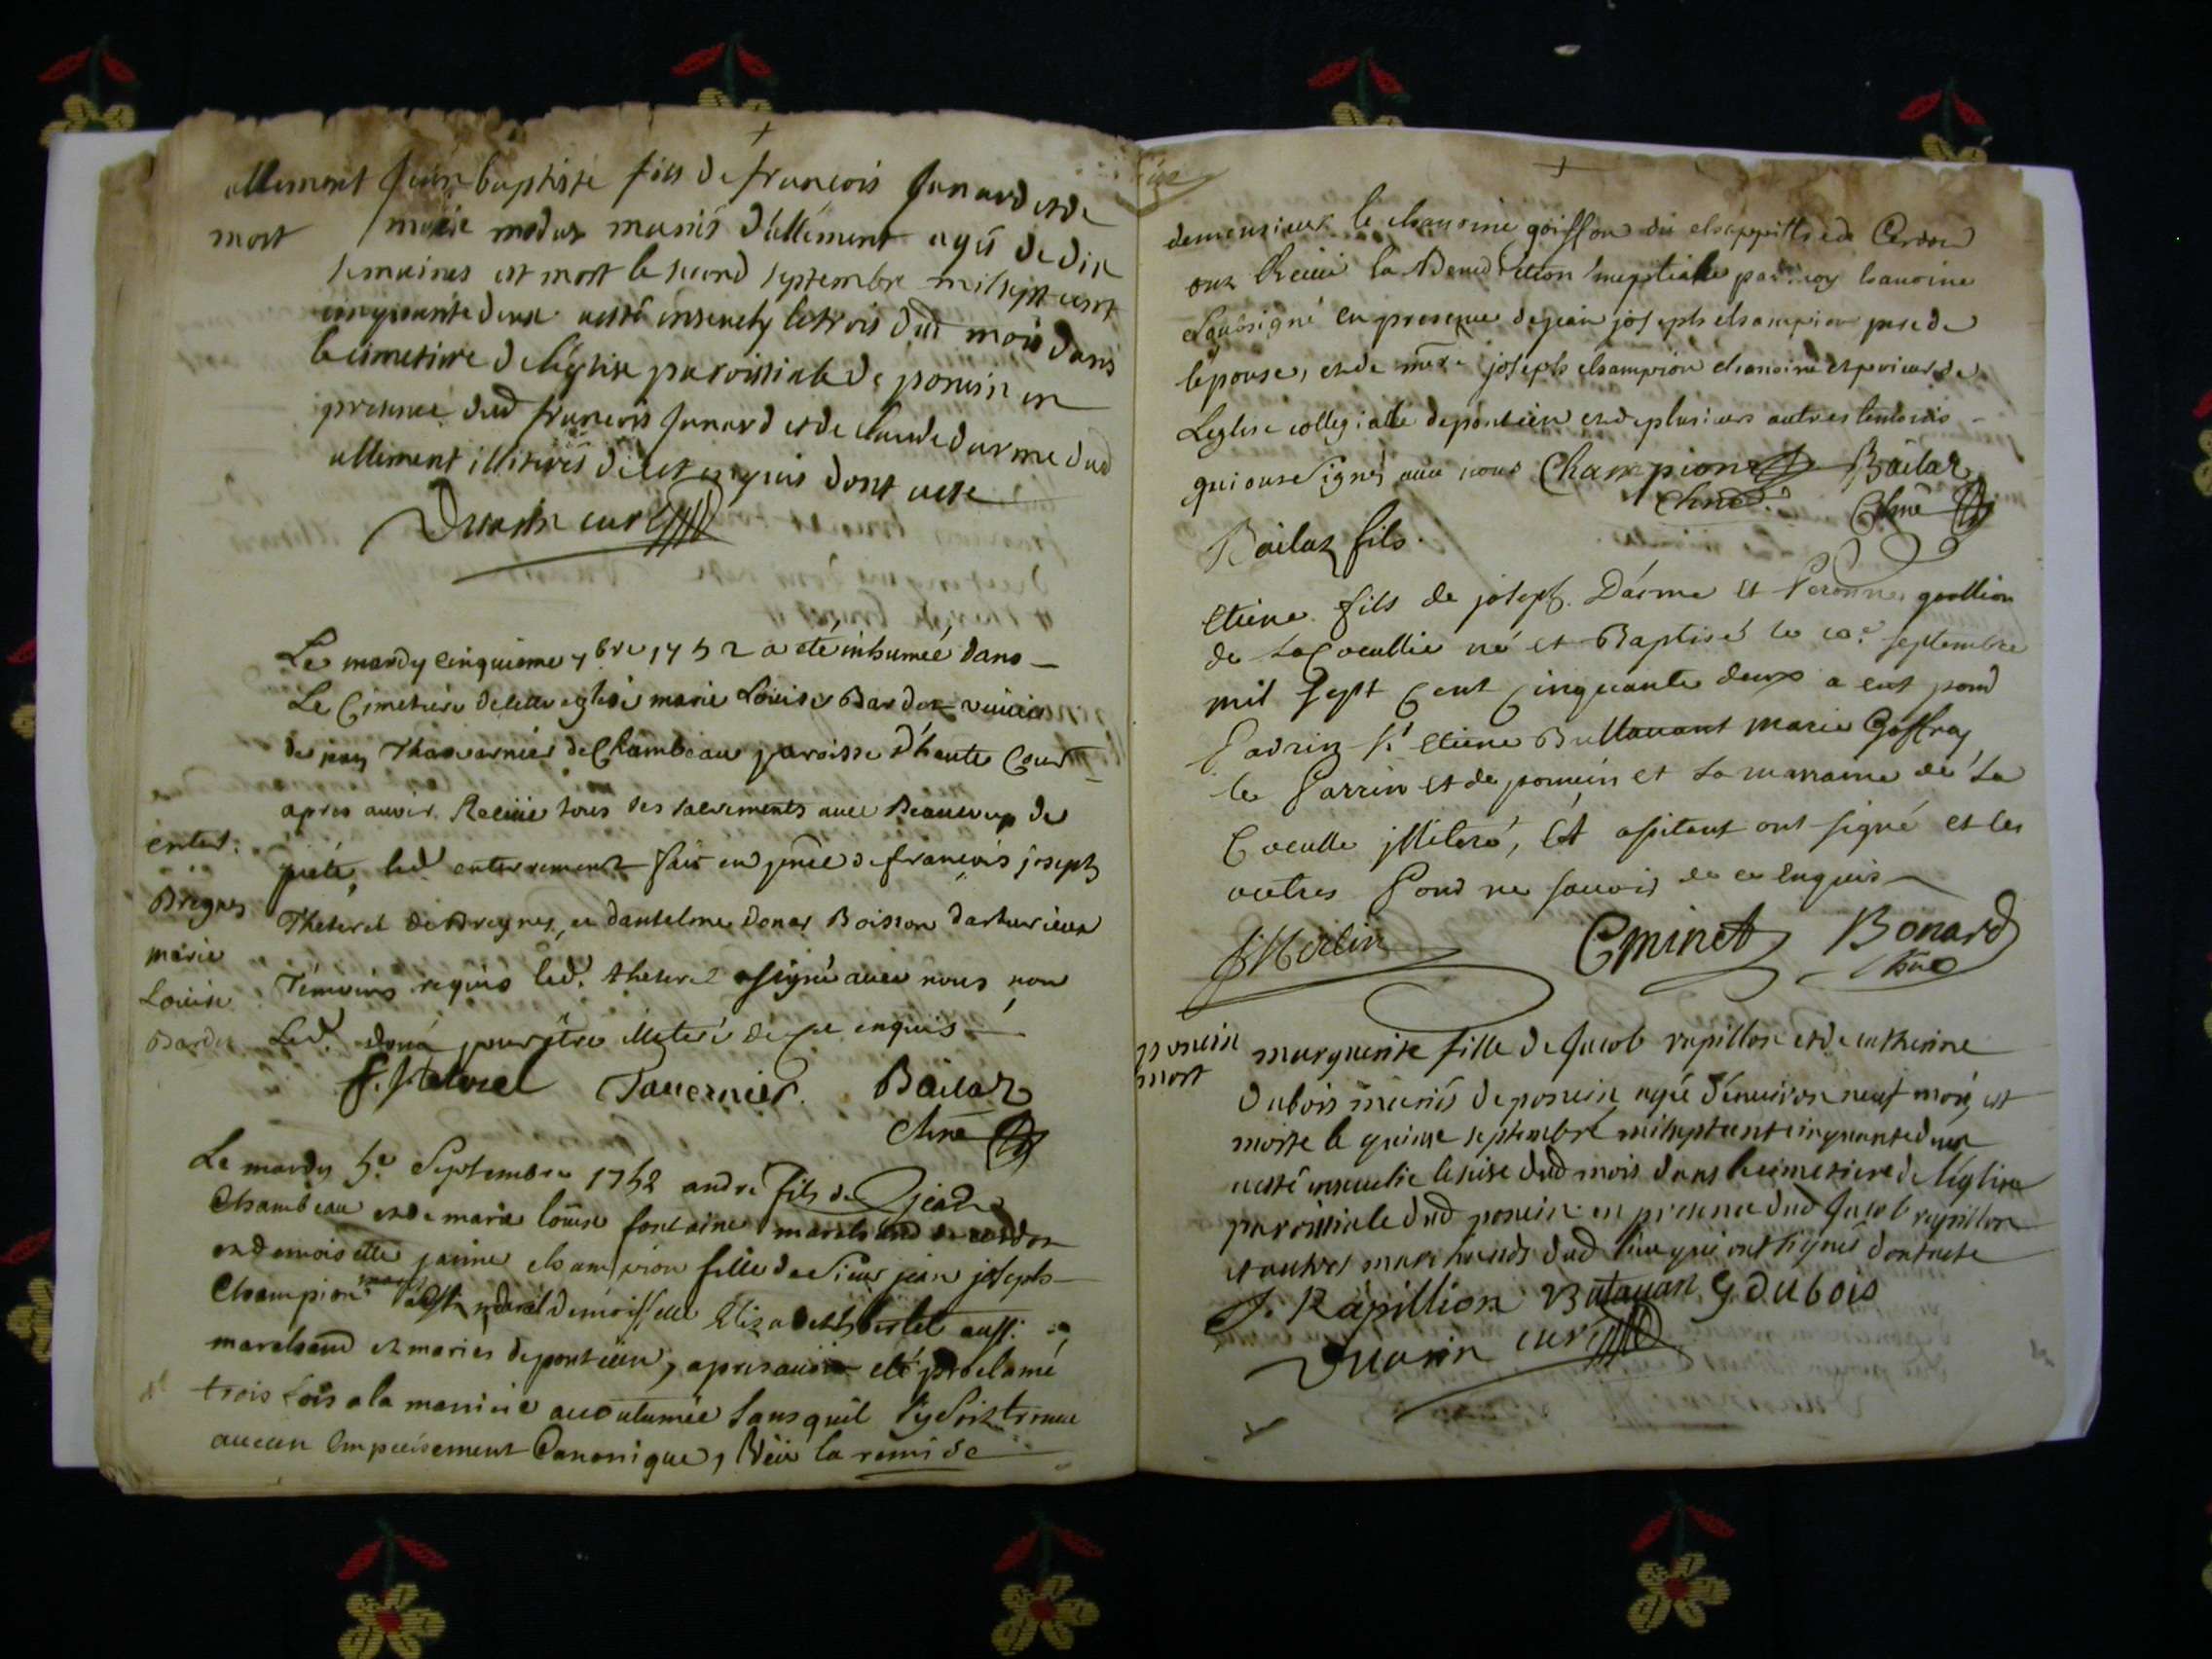 allement Jean baptiste fils de françois Junard et de
mort marie modas mariés d'allement agé de dix
semaines est mort le second septembre mil sept cent
cinquante deux a esté ensevely le trois dud mois dans
le cimetiere de l'église paroissiale de poncin en
presence dud françois Junard et de claude darme dud
allement illiterés de ce enquis dont acte
curé
Le mardy cinquieme 7bre 1752 a eté inhumée dans
Le Cimetiere de cette eglise marie Louise Bardet
de Chambeau paroisse d'haute Cour
apres avoir Receüe tous ses sacrements avec Beaucoup de
enter:
pieté, led enterrement fait en pñce de françois joseph
Bregnes
Theterel de Bregnes, et danthelme Donas Boisson
marie
Témoins requis led. theterel a signé avec nous non
Louise
Bardet
Led. pour être illiteré de ce enquis
Tavernier. Bailaz
Chne
Le mardy 5e Septembre 1752 andré fils de jean
Chambeau et de marie loüise fontaine marchand de cerdon
et demoiselle janne champion fille de Sieur jean joseph
Champion et de demoisselle Elizabeth bertet aussi
marchand et mariés de pontcin, apres avoir eté proclamé
trois fois a la maniere accoutumée Sans quil sy soit trouvé
aucun Empeschement Canonique, Veü la remise
de monsieur le chanoine goiffon de Cerdon
ont Receu la Benediction nuptiale par moy chanoine
Soubsigné en presence de jean joseph champion pere de
lépouse, et de mere joseph champion chanoine et prieur de
Leglise collegialle de pontcin et de plusieurs autres temoins
qui ont signé avec nous Champion Bailaz
Chne Chne
Bailaz fils.
Etiene fils de joseph Darme et Peronne goullion
de La Cocullie né et Baptisé le 10e septembre
mil sept cent cinquante deux a eut pour
Parrin Sr etiene Buttavant marie Goffray
le Parrin est de poncin et La marraine de La
Coculle illiteré, Les assitant ont signé et les
autres Pour ne savoir de ce enquis
Merlin Cminet Bonard
Chne
poncin marguerite fille de Jacob rapillon et de catherine
mort dubois mariés de poncin agée d'environ neuf mois, est
morte le quinse septembre mil sept cent cinquante deux
a esté ensevelie le seise dud mois dans le cimetiere de l'église
paroissiale dud poncin en presence dud Jacob rapillon
et autres marchands dud lieu qui ont signés dont acte
J. Rapillion Butavan G dubois
curé